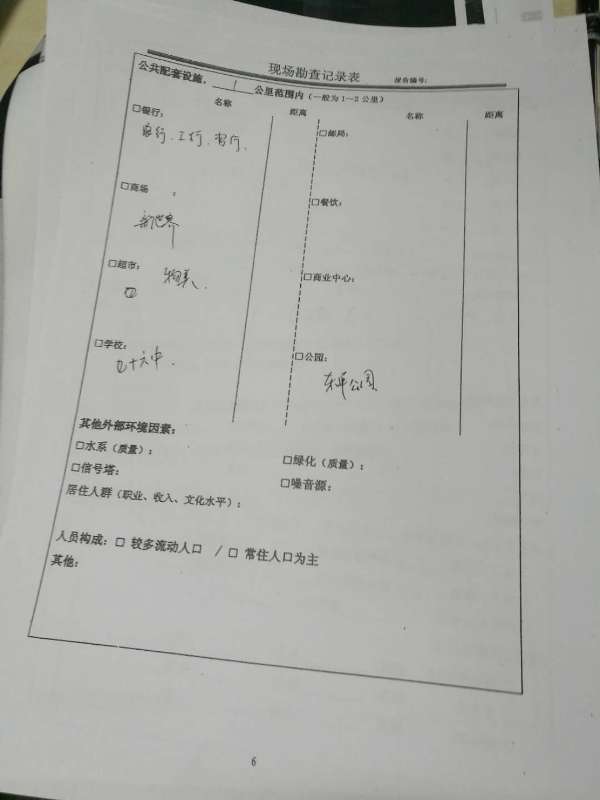 现场勘查记录表 报告编号:
公共配套设施, 1 公里范围内(一般为1—2公里)
名称 距离 名称 距离
□银行: □邮局:
工行、
□商场 : □餐饮:
新世界
□超市: 物美、 □商业中心:
□学校: □公园:
九十六中、
公园
其他外部环境因素:
□水系(质量): □绿化(质量):
□信号塔: □噪音源:
居住人群(职业、收入、文化水平):
人员构成: □ 较多流动人口 / □ 常住人口为主
其他:
6